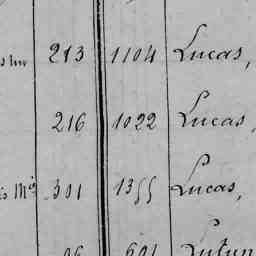 213 1104 Lucas,
216 1022 Lucas,
301 1355 Lucas,